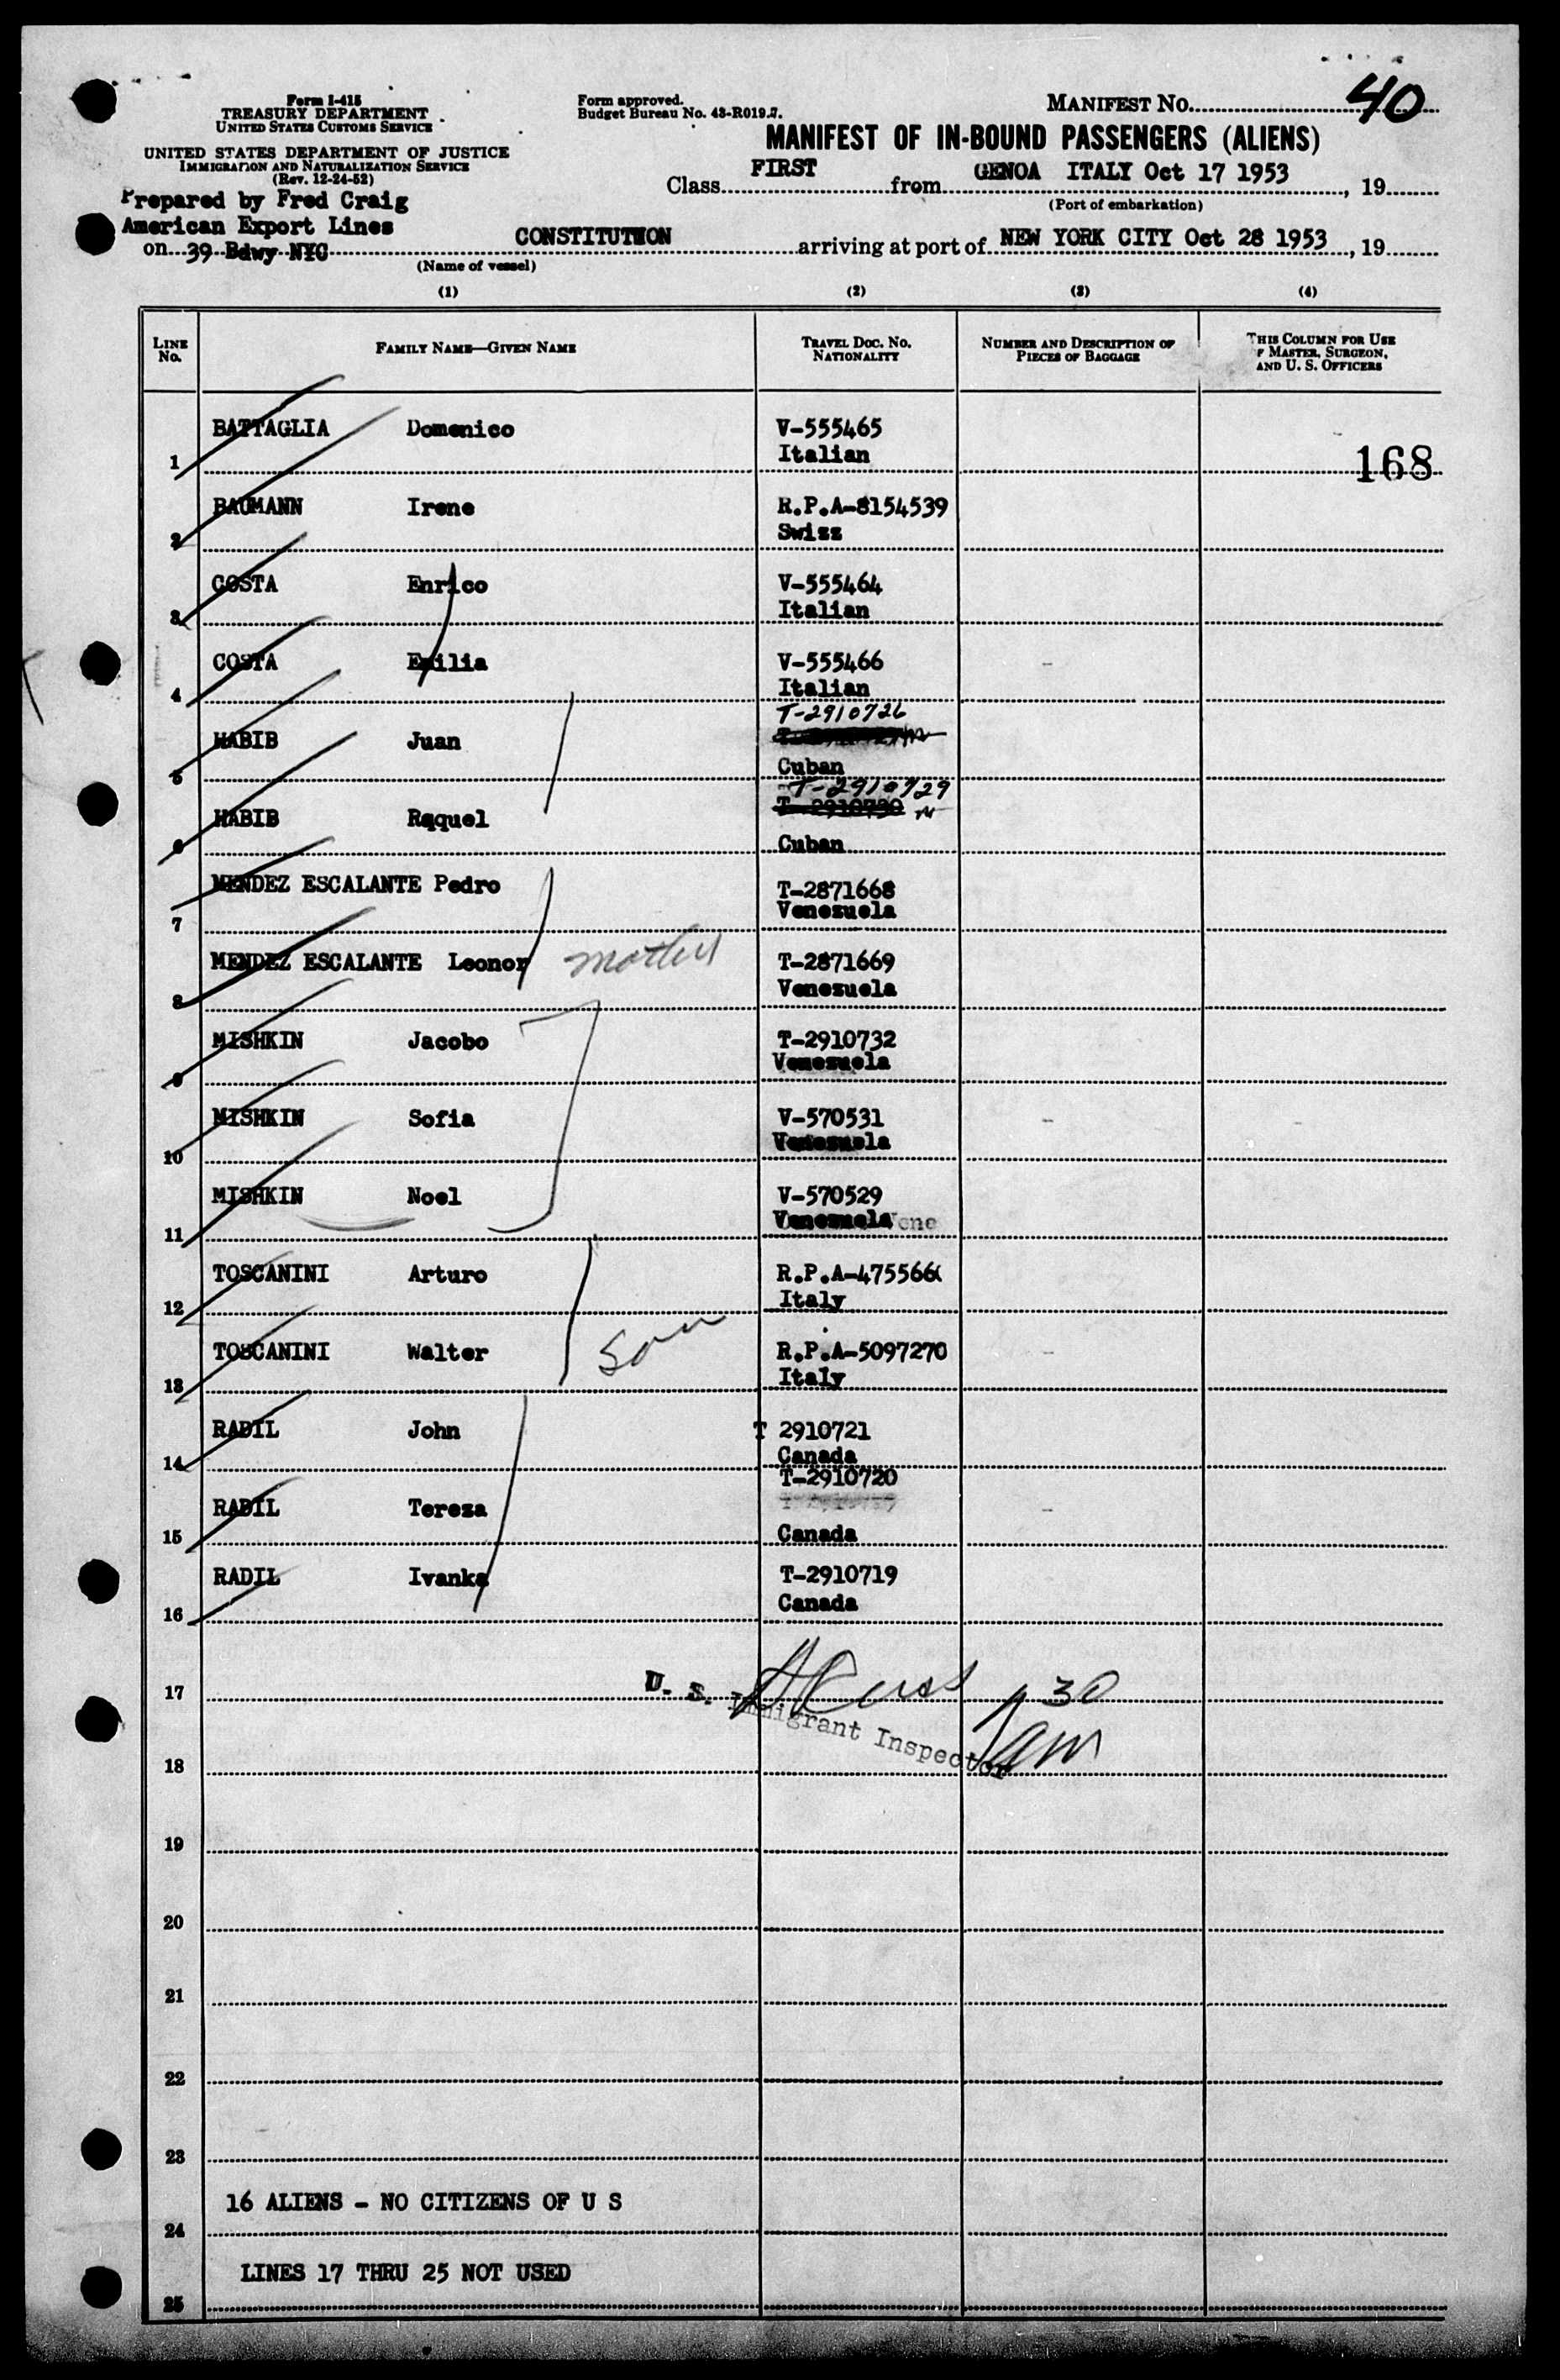 Form I-415
TREASURY DEPARTMENT
UNITED STATES CUSTOMS SERVICE
UNITED STATES DEPARTMENT OF JUSTICE
IMMIGRATION AND NATURALIZATION SERVICE
(Rev. 12-24-52)
Prepared by Fred Craig
American Export Lines
Form approved.
Budget Bureau No. 43-R019.7.
MANIFEST NO. 40
MANIFEST OF IN-BOUND PASSENGERS (ALIENS)
Class FIRST from GENOA ITALY Oct 17 1953, 19
(Port of embarkation)
on 39 Bdwy NYC CONSTITUTION arriving at port of NEW YORK CITY Oct 28 1953, 19
(Name of vessel)
(1) (2) (3) (4)
LINE NO. FAMILY NAME—GIVEN NAME TRAVEL DOC. NO. NATIONALITY NUMBER AND DESCRIPTION OF PIECES OF BAGGAGE THIS COLUMN FOR USE OF MASTER, SURGEON, AND U. S. OFFICERS
BATTAGLIA Domenico V-555465
1 Italian 168
BAUMANN Irene R.P.A-8154539
2 Swiss
COSTA Enrico V-555464
3 Italian
COSTA Emilia V-555466
4 Italian
T-2910726
HABIB Juan
5 Cuban
T-2910729
HABIB Raquel T-2910730
6 Cuban
MENDEZ ESCALANTE Pedro T-2871668
7 Venezuela
MENDEZ ESCALANTE Leonor mother T-2871669
8 Venezuela
MISHKIN Jacobo T-2910732
9 Venezuela
MISHKIN Sofia V-570531
10 Venezuela
MISHKIN Noel V-570529
11 Venezuela
TOSCANINI Arturo R.P.A-475566
12 Italy
TOSCANINI Walter son R.P.A-5097270
13 Italy
RADIL John T 2910721
14 Canada
T-2910720
RADIL Tereza
15 Canada
RADIL Ivanka T-2910719
16 Canada
17 U. S. Immigrant Inspector 1 30
18 am
19
20
21
22
23
16 ALIENS - NO CITIZENS OF U S
24
LINES 17 THRU 25 NOT USED
25